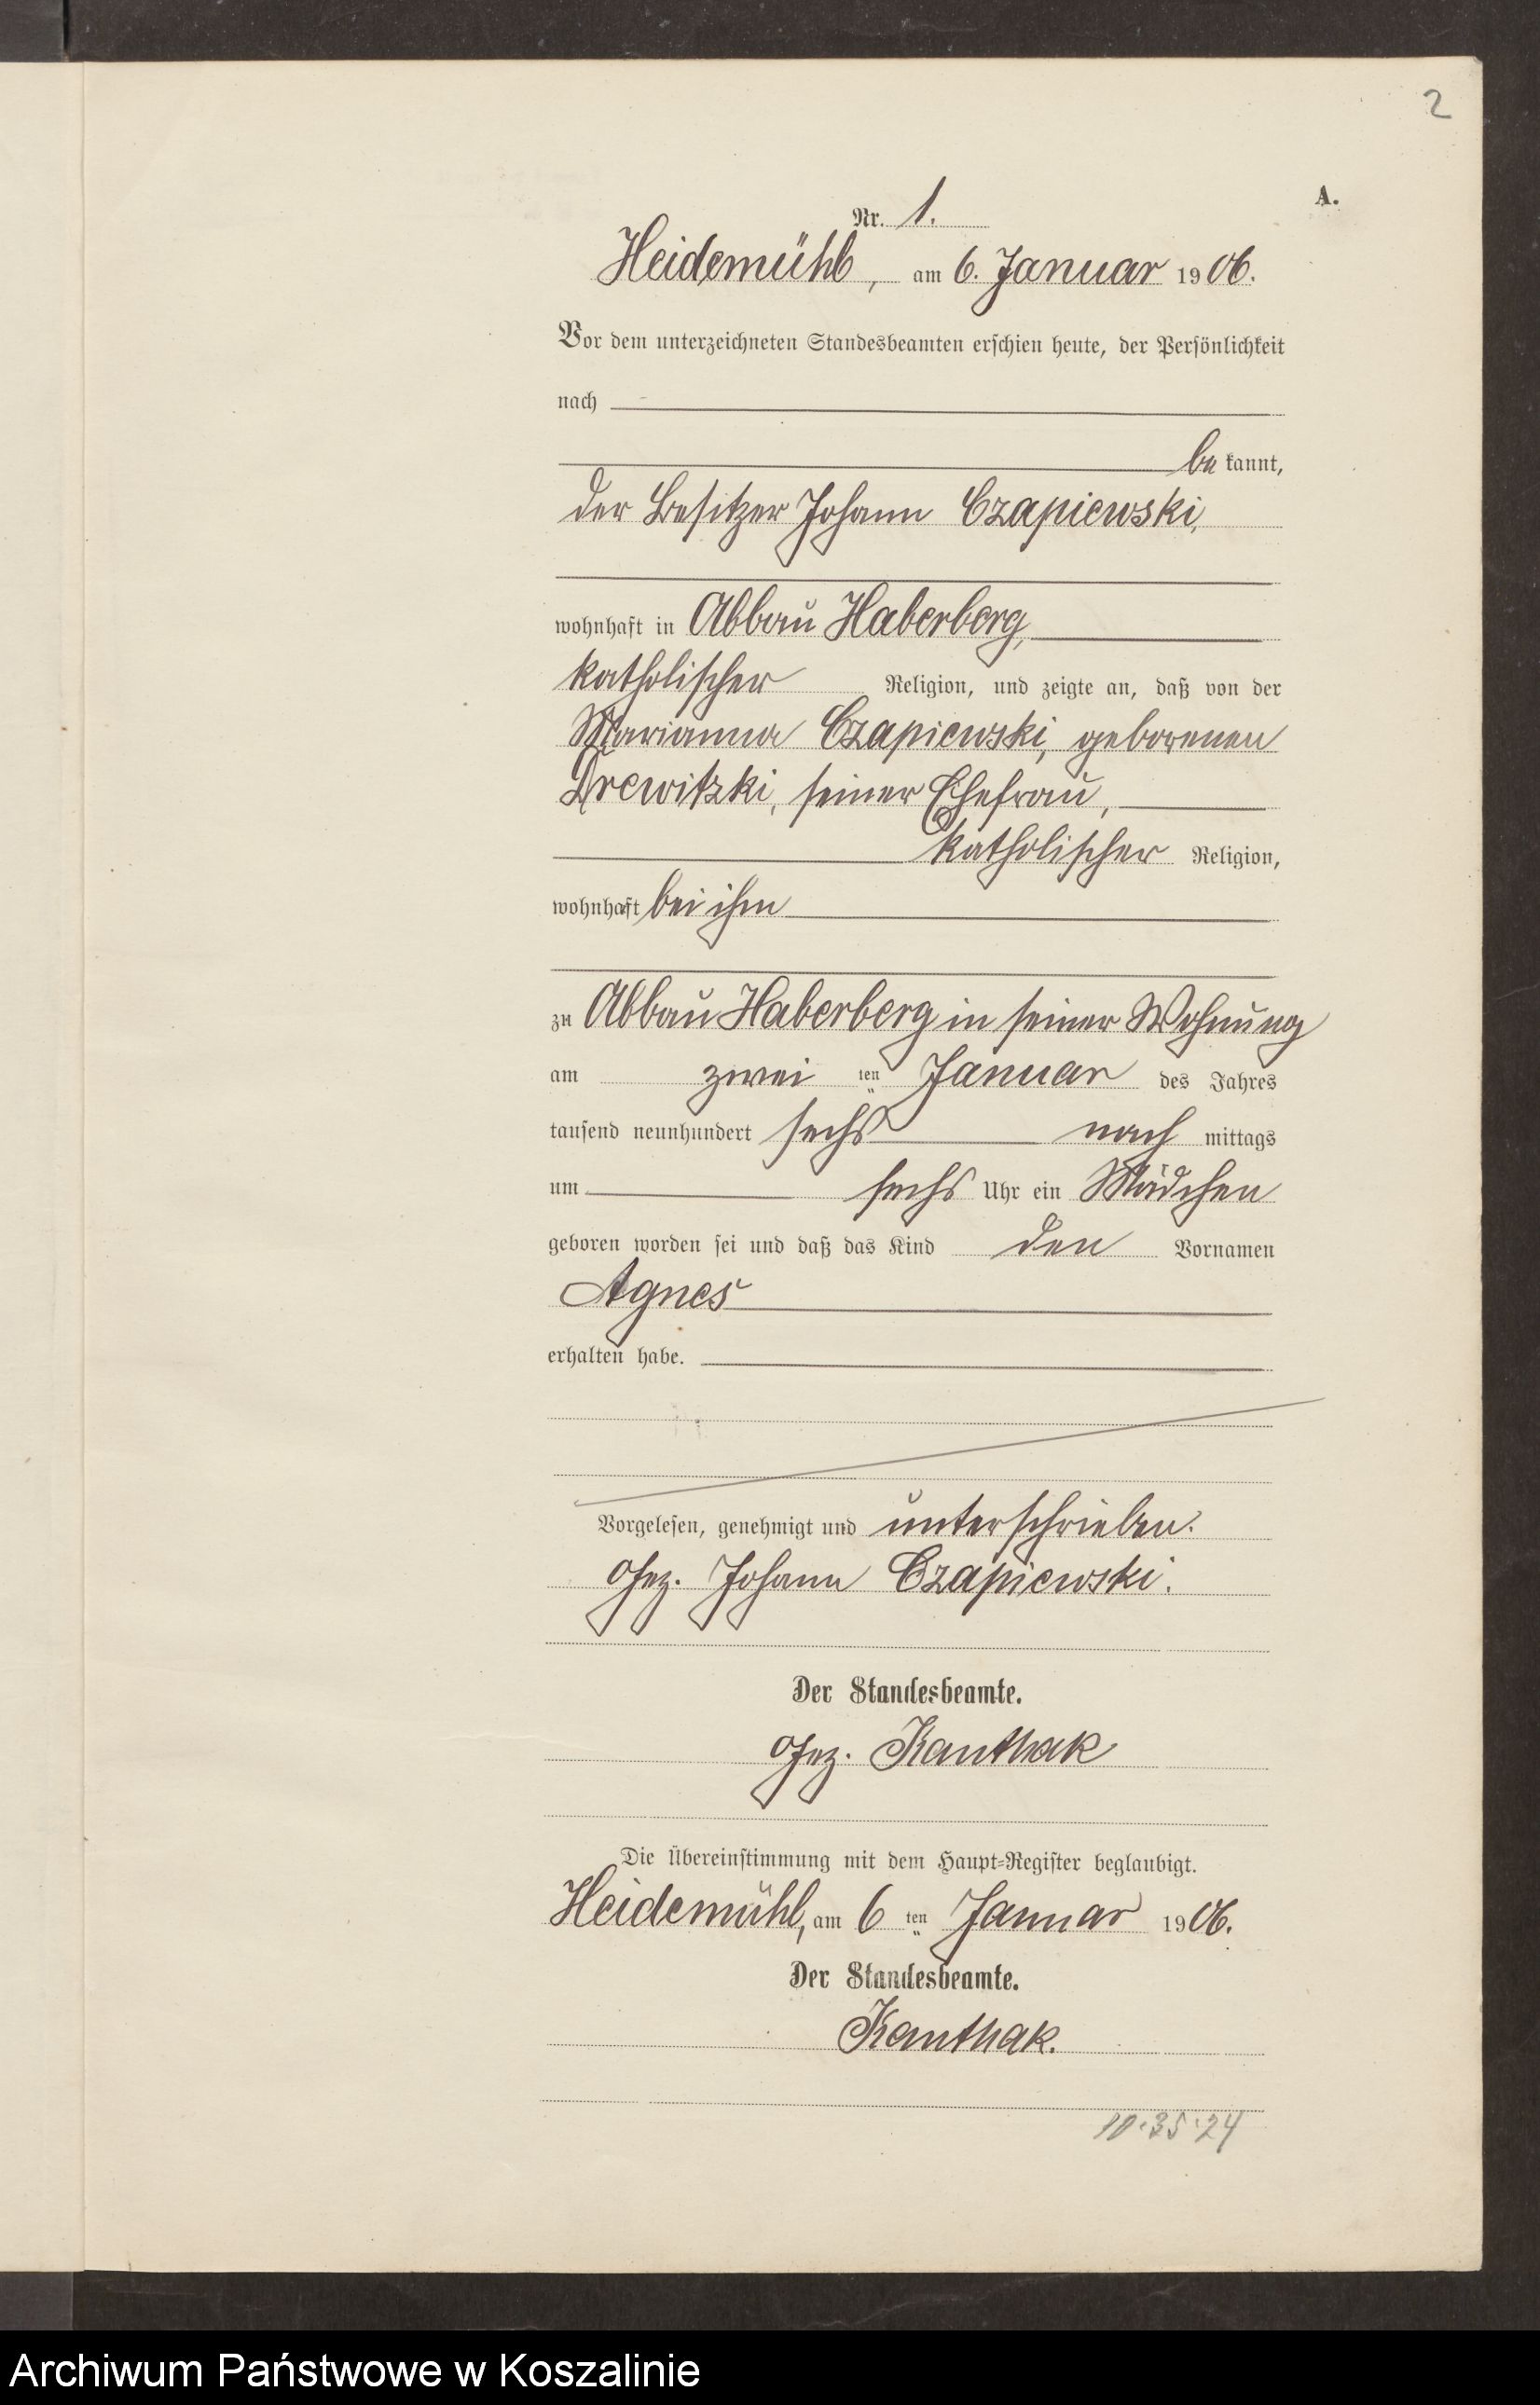 2
A.
Nr. 1.
Heidemühl, am 6. Januar 1906.
Vor dem unterzeichneten Standesbeamten erschien heute, der Persönlichkeit
nach
be kannt,
der Besitzer Johann Czapiewski,
wohnhaft in Abbau Haberberg,
katholischer Religion, und zeigte an, daß von der
Marianna Czapiewski, geborenen
Drewitzki, seiner Ehefrau,
katholischer Religion,
wohnhaft bei ihm
zu Abbau Haberberg in seiner Wohnung
am zwei ten Januar des Jahres
tausend neunhundert sechs nach mittags
um sechs Uhr ein Mädchen
geboren worden sei und daß das Kind den Vornamen
Agnes
erhalten habe.
Vorgelesen, genehmigt und unterschrieben.
Gez. Johann Czapiewski.
Der Standesbeamte.
Gez. Kanthak
Die Übereinstimmung mit dem Haupt-Register beglaubigt.
Heidemühl, am 6 ten Januar 1906.
Der Standesbeamte.
Kanthak.
10·35·24
Archiwum Państwowe w Koszalinie